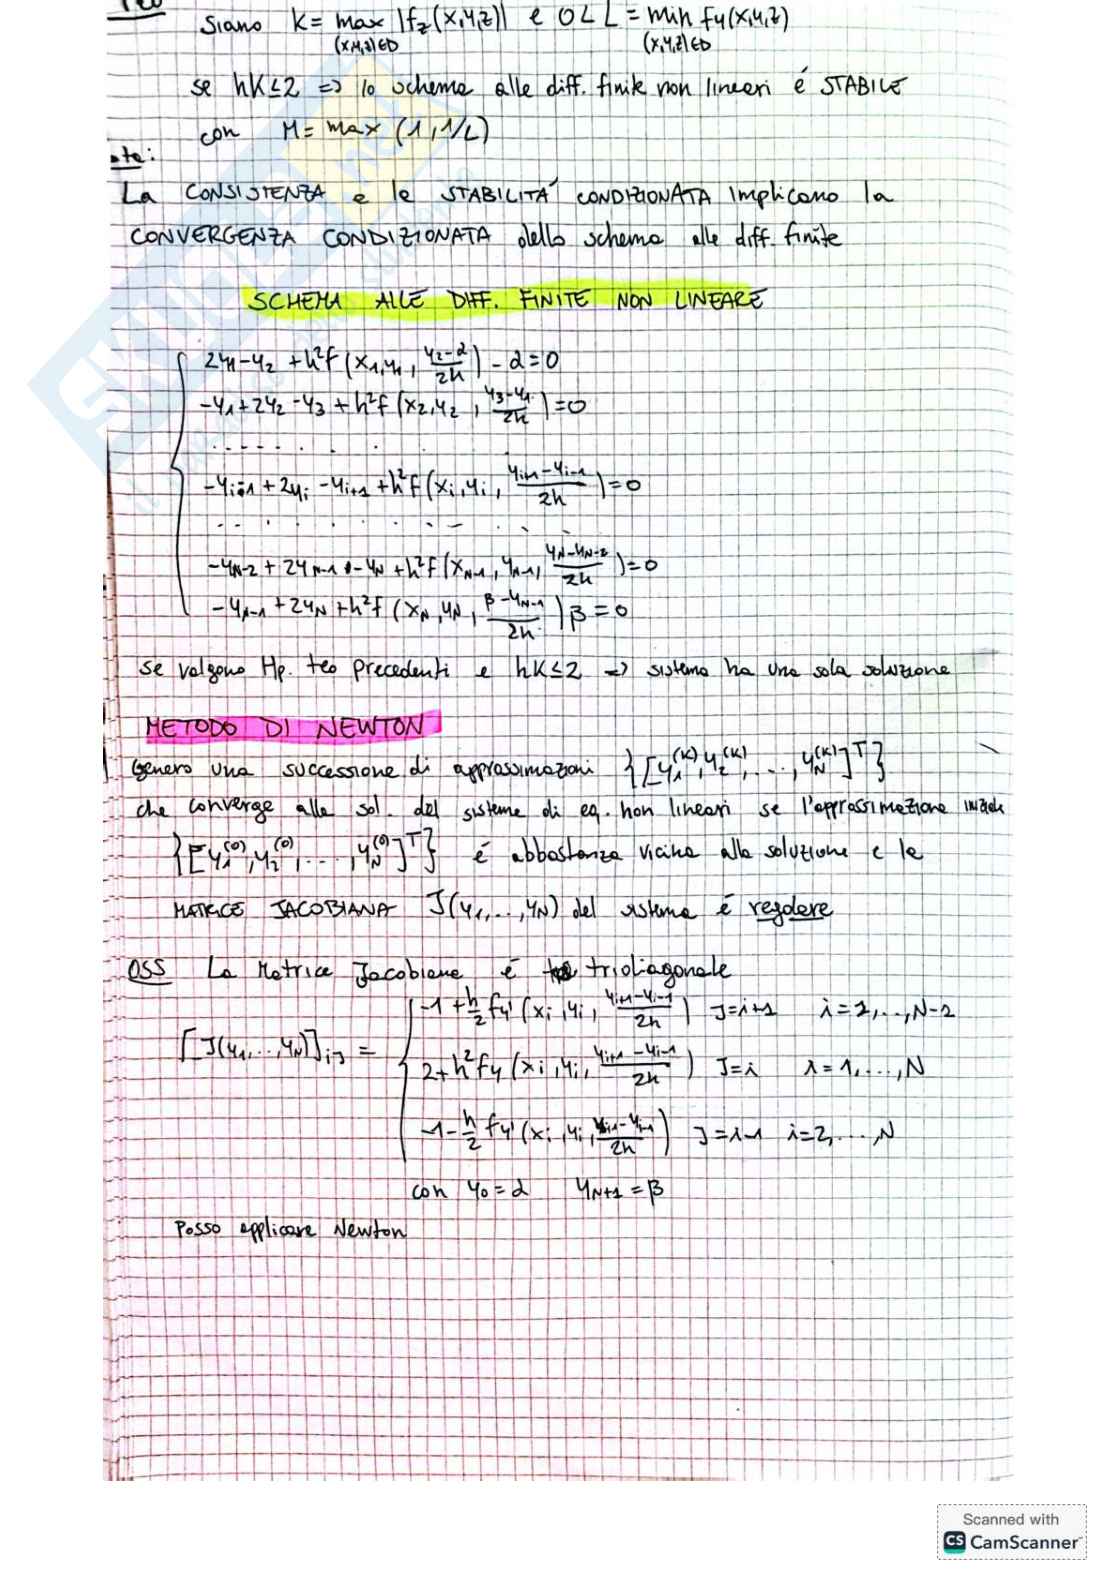 Teo
Siano K = max |fz(x,y,z)| e 0 < L = min fy(x,y,z)
(x,y,z)∈D (x,y,z)∈D
se hK≤2 => lo schema alle diff. finite non lineari é STABILE
con M = max (1, 1/L)
La CONSISTENZA e la STABILITÁ CONDIZIONATA implicano la
CONVERGENZA CONDIZIONATA dello schema alle diff. finite
SCHEMA ALLE DIFF. FINITE NON LINEARE
2y1-y2 + h²f (x1,y1, (y2-α)/2h) - α = 0
-y1+2y2-y3 + h²f (x2,y2, (y3-y1)/2h) = 0
......
-yi-1 + 2yi - yi+1 + h²f (xi,yi, (yi+1-yi-1)/2h) = 0
......
-yN-2 + 2yN-1 - yN + h²f (xN-1, yN-1, (yN-yN-2)/2h) = 0
-yN-1 + 2yN + h²f (xN,yN, (β-yN-1)/2h) β = 0
se valgono Hp. teo precedenti e hK≤2 => sistema ha una sola soluzione
METODO DI NEWTON
Genero una successione di approssimazoni {[y1^(K), y2^(K), ..., yN^(K)]^T}
che converge alla sol. del sistema di eq. non lineari se l'approssimazione iniziale
{[y1^(0), y2^(0), ..., yN^(0)]^T} é abbastanza vicina alla soluzione e la
MATRICE JACOBIANA J(y1,..,yN) del sistema é regolare
OSS La Matrice Jacobiana é tridiagonale
[J(y1,...,yN)]ij = { -1 + h/2 fy' (xi,yi, (yi+1-yi-1)/2h) J=i+1 i=1,..,N-2
2+h²fy (xi,yi, (yi+1-yi-1)/2h) J=i i=1,...,N
-1 - h/2 fy' (xi,yi, (yi+1-yi-1)/2h) J=i-1 i=2,...,N
con y0=α yN+1=β
Posso applicare Newton
Scanned with
CS CamScanner